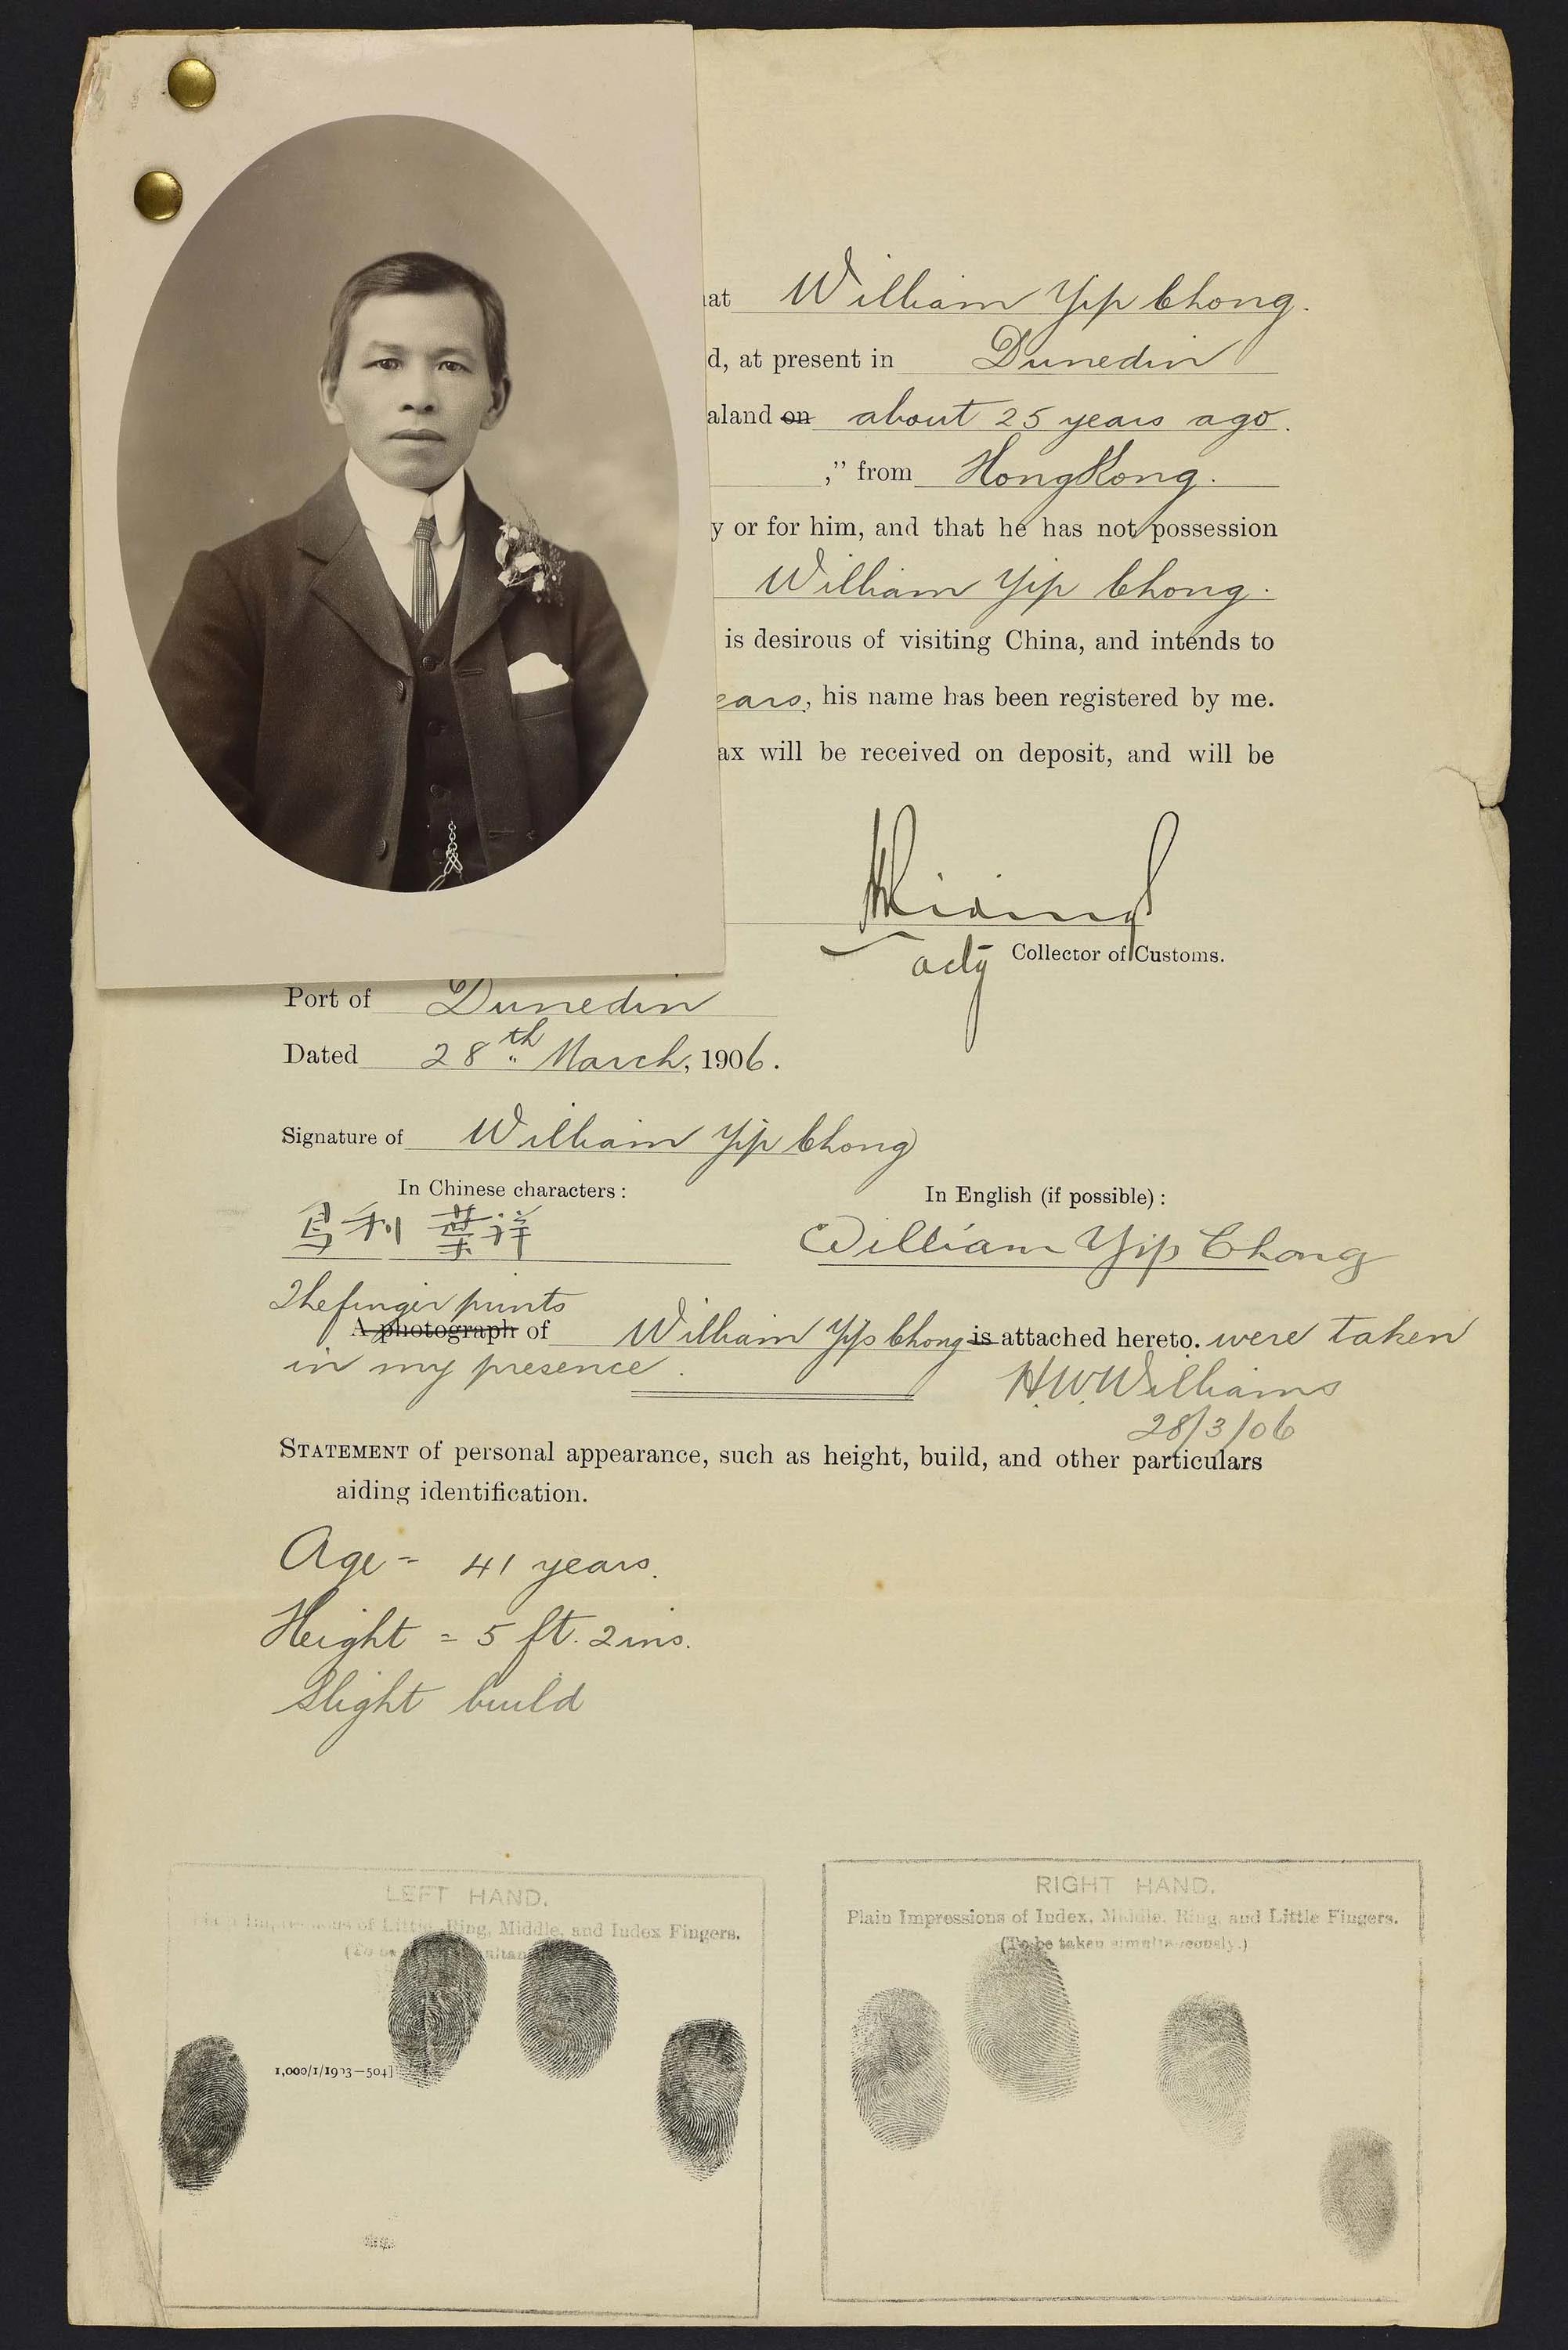 William Yip Chong.
d, at present in Dunedin
aland on about 25 years ago.
," from HongKong.
y or for him, and that he has not possession
William Yip Chong.
is desirous of visiting China, and intends to
ears, his name has been registered by me.
ax will be received on deposit, and will be
actg Collector of Customs.
Port of Dunedin
Dated 28th March, 1906.
Signature of William Yip Chong
In Chinese characters:
In English (if possible):
利 葉祥
William Yip Chong
The finger prints
A photograph of William Yip Chong is attached hereto. were taken
in my presence.
H.W.Williams
28/3/06
STATEMENT of personal appearance, such as height, build, and other particulars
aiding identification.
Age = 41 years.
Height = 5 ft. 2 ins.
Slight build
LEFT HAND.
of Little, Ring, Middle, and Index Fingers.
RIGHT HAND.
Plain Impressions of Index, Middle, Ring, and Little Fingers.
(To be taken simultaneously.)
1,000/1/1903—504]